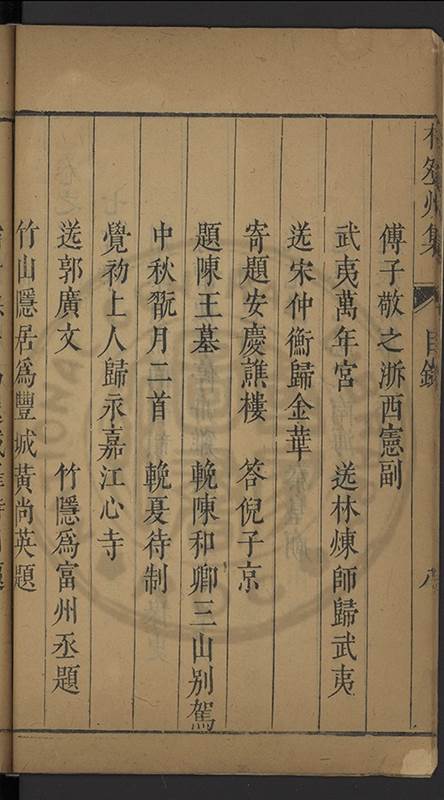 傅子敬之浙西憲副
武夷萬年宮　送林煉師歸武夷
送宋仲衡歸金華
寄題安慶譙樓　答倪子京
題陳王墓　輓陳和卿三山別駕
中秋翫月二首　輓夏待制
覺初上人歸永嘉江心寺
送郭廣文　竹隱爲富州丞題
竹山隱居爲豐城黃尚英題
集　目錄